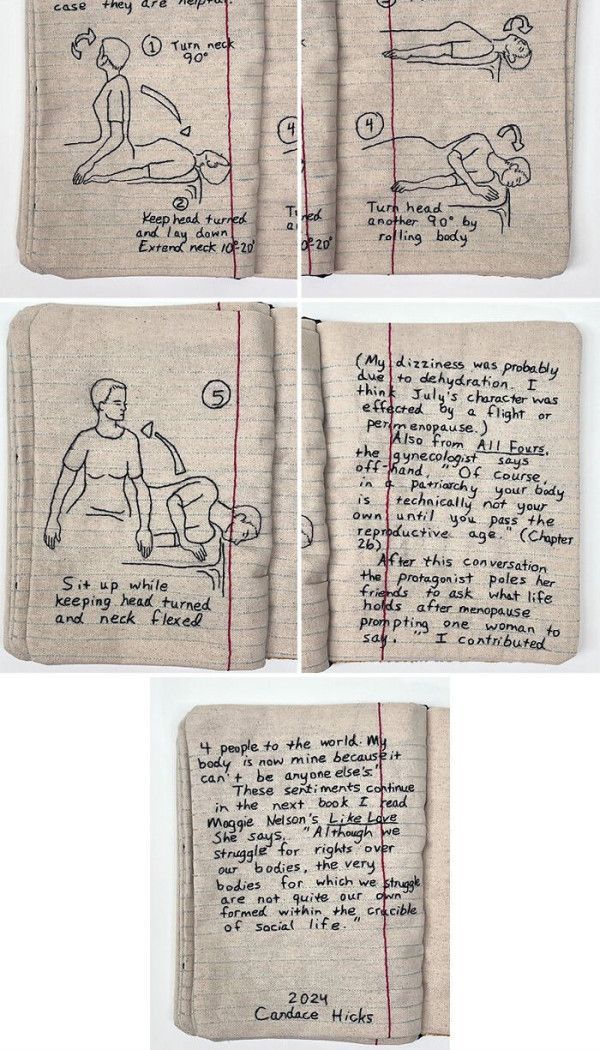 case they are helpful.
1 Turn neck
90°
2
Keep head turned
and lay down
Extend neck 10°-20°
4
4
Turn head
another 90° by
rolling body
5
Sit up while
keeping head turned
and neck flexed
(My dizziness was probably
due to dehydration. I
think July's character was
effected by a flight or
perimenopause.)
Also from All Fours,
the gynecologist says
off-hand, "Of course,
in a patriarchy your body
is technically not your
own until you pass the
reproductive age." (Chapter
26)
After this conversation
the protagonist poles her
friends to ask what life
holds after menopause
prompting one woman to
say, "I contributed
4 people to the world. My
body is now mine because it
can't be anyone else's."
These sentiments continue
in the next book I read
Maggie Nelson's Like Love
She says, "Although we
struggle for rights over
our bodies, the very
bodies for which we struggle
are not quite our own
formed within the crucible
of social life."
2024
Candace Hicks